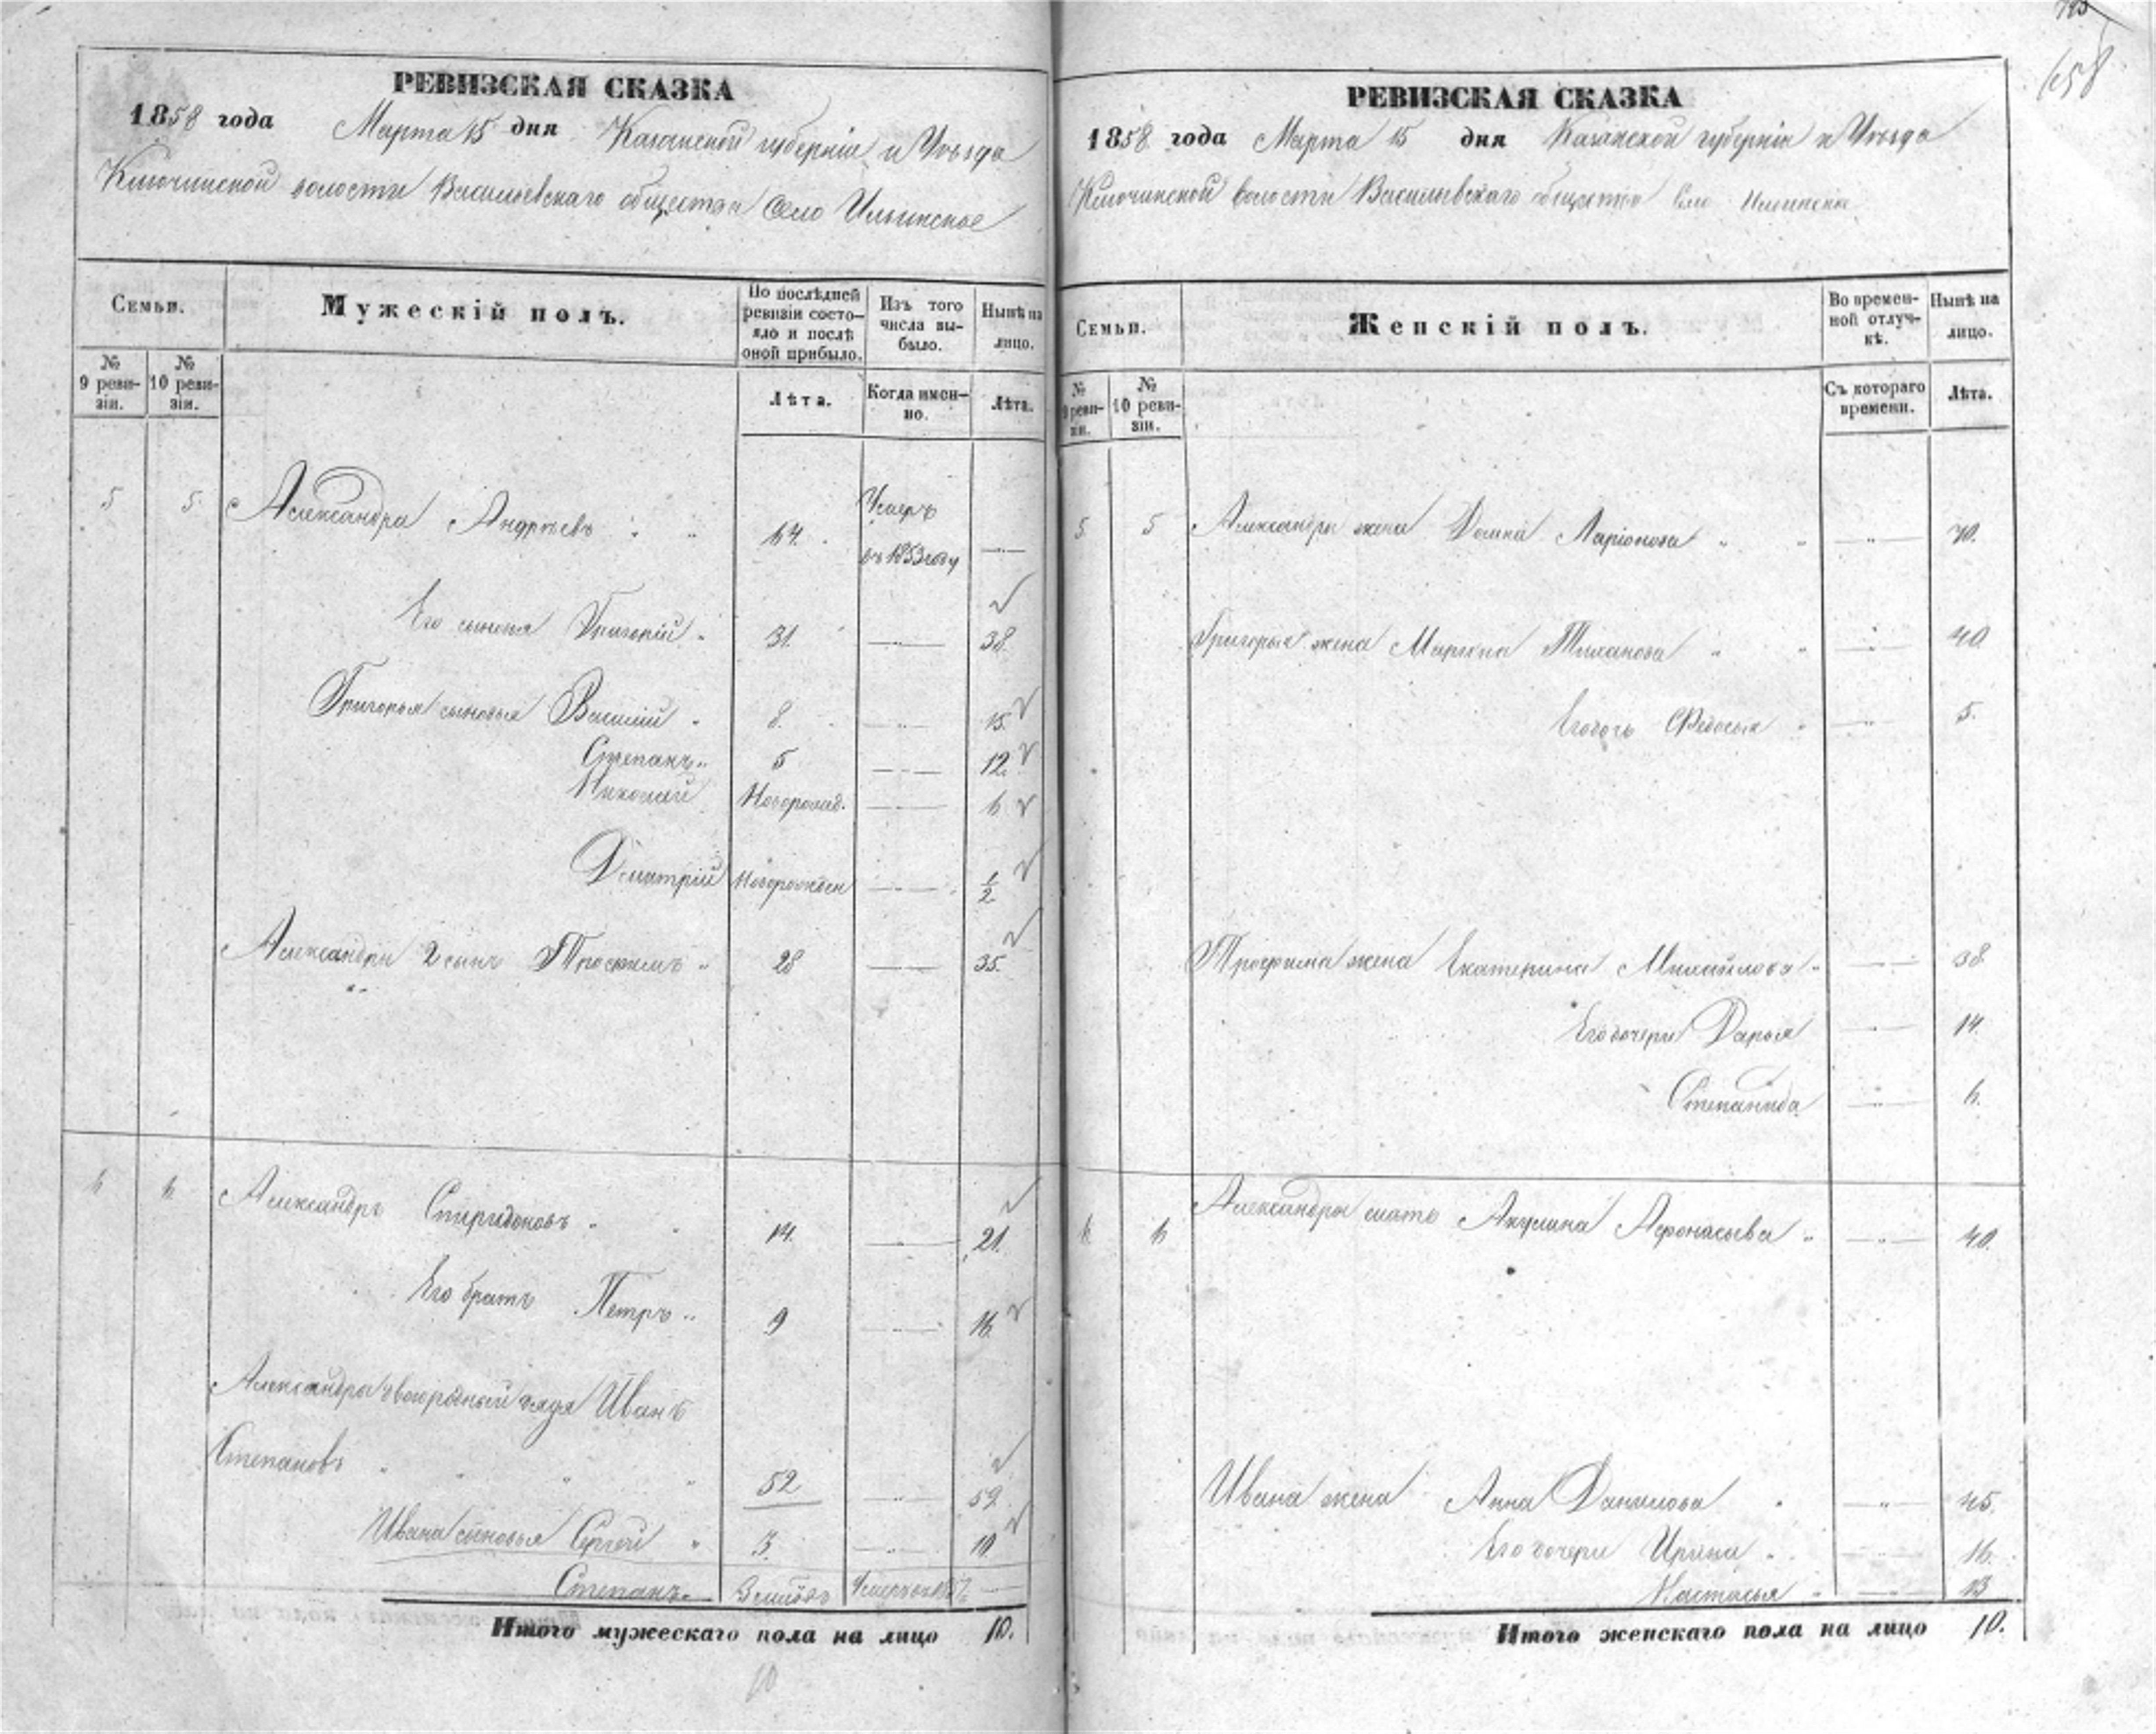 РЕВИЗСКАЯ СКАЗКА
1858 года Марта 15 дня Казанской губерніи и Уѣзда
Ключинской волости Васильевскаго общества Село Ильинское
Семьи.
Мужескій полъ.
По послѣдней ревизіи состояло и послѣ оной прибыло.
Изъ того числа выбыло.
Нынѣ на лицо.
№ 9 ревизіи.
№ 10 ревизіи.
Лѣта.
Когда именно.
Лѣта.
5 5 Александра Андреевъ 64. Умеръ въ 1853 году —
Его сыновья Григорій 31. — 38.
Григорья сыновья Василій 8. — 15.
Степанъ 5 — 12.
Николай Новорожд. — 6
Дмитрій Новорожден — 1/2
Александры 2 сынъ Трофимъ 28 — 35.
6 6 Александръ Спиридоновъ 14. — 21.
Его братъ Петръ 9 — 16.
Александры двоюродный дядя Иванъ
Степановъ 52 — 59.
Ивана сыновья Сергей 3. — 10
Степанъ Умеръ —
Итого мужескаго пола на лицо 10.
10
658
РЕВИЗСКАЯ СКАЗКА
1858 года Марта 15 дня Казанской губерніи и Уѣзда
Ключинской волости Васильевскаго общества Село Ильинское
Семьи.
Женскій полъ.
Во временной отлучкѣ.
Нынѣ на лицо.
№ 9 ревизіи.
№ 10 ревизіи.
Съ котораго времени.
Лѣта.
5 5 Александры жена Домна Ларіонова — 70.
Григорья жена Тиханова — 40
Его дочь Федосья — 5.
Трофима жена Екатерина Михайлова — 38
Его дочери Дарья — 14.
Степанида — 6.
6 6 Александры мать Акулина Афонасьева — 40.
Ивана жена Анна Данилова — 45.
Его дочери Ирина — 16.
Настасья — 13
Итого женскаго пола на лицо 10.